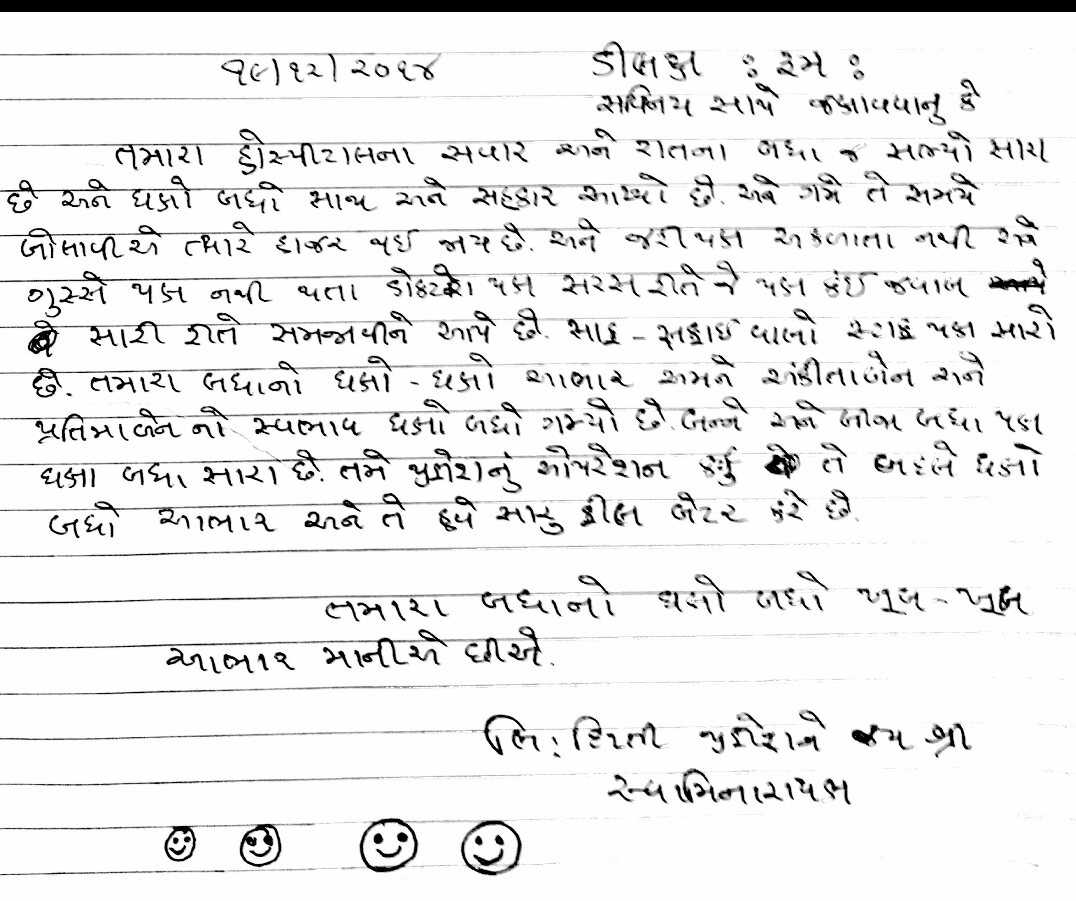 ૧૯/૧૨/૨૦૧૪ ડીલક્ષ : રૂમ :
સવિનય સાથે જણાવવાનુ કે
તમારા હોસ્પીટાલના સવાર અને રાતના બધા જ સભ્યો સારા
છે અને ઘણો બધો સાથ અને સહકાર આપ્યો છે. અને ગમે તે સમયે
બોલાવીએ ત્યારે હાજર થઈ જાય છે. અને જરી પણ અકળાતા નથી અને
ગુસ્સે પણ નથી થતા ડોક્ટરો પણ સરસ રીતે જે પણ કંઈ જવાબ
સારી રીતે સમજાવીને આપે છે. સાફ - સફાઈ વાલો સ્ટાફ પણ સારો
છે. તમારા બધાનો ઘણો - ઘણો આભાર અમને અંકીતાબેન અને
પ્રતિમાબેન નો સ્વભાવ ઘણો બધો ગમ્યો છે. બન્ને અને બીજા બધા પણ
ઘણા બધા સારા છે. તમે મુકેશનું ઓપરેશન કર્યુ તે બદલે ઘણો
બધો આભાર અને તે હવે સારુ ફીલ બેટર કરે છે.
તમારા બધાનો ઘણો બધો ખૂબ - ખૂબ
આભાર માનીએ છીએ.
લિ : જય શ્રી
સ્વામિનારાયણ